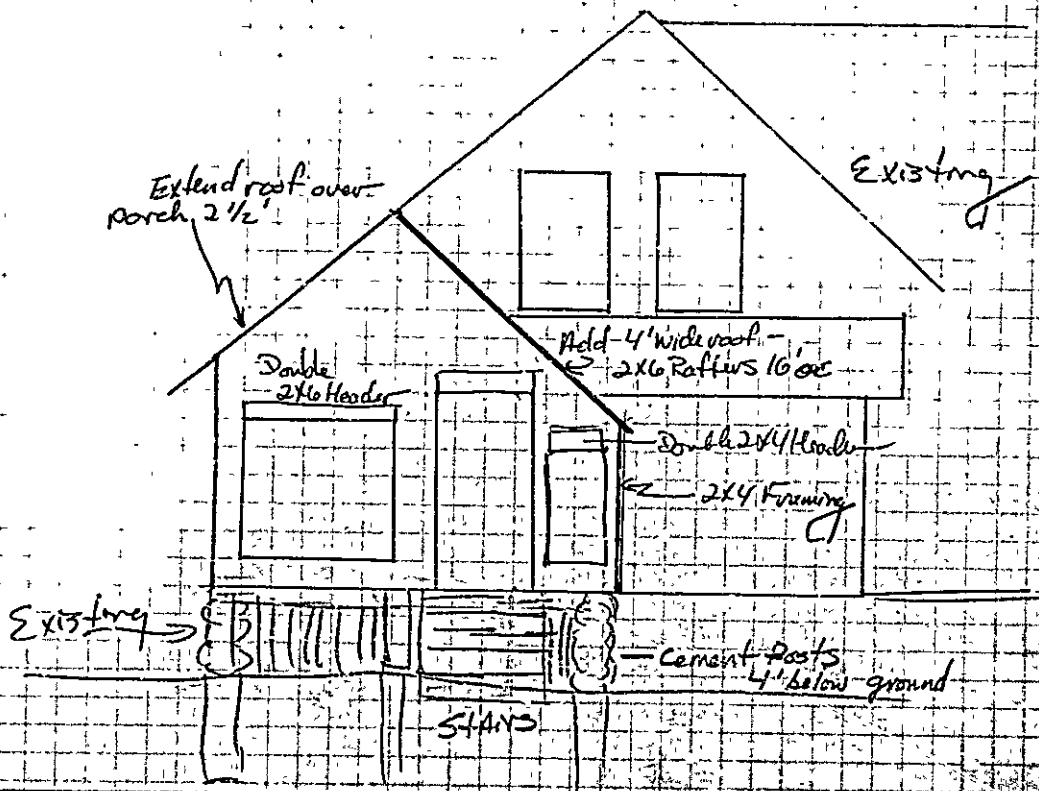 Extend roof over
porch 2 1/2'
Existing
Add 4' wide roof -
2x6 Rafters 16"oc
Double
2x6 Header
Double 2x4 Header
2x4 Framing
Existing
Cement Posts
4' below ground
STAIRS